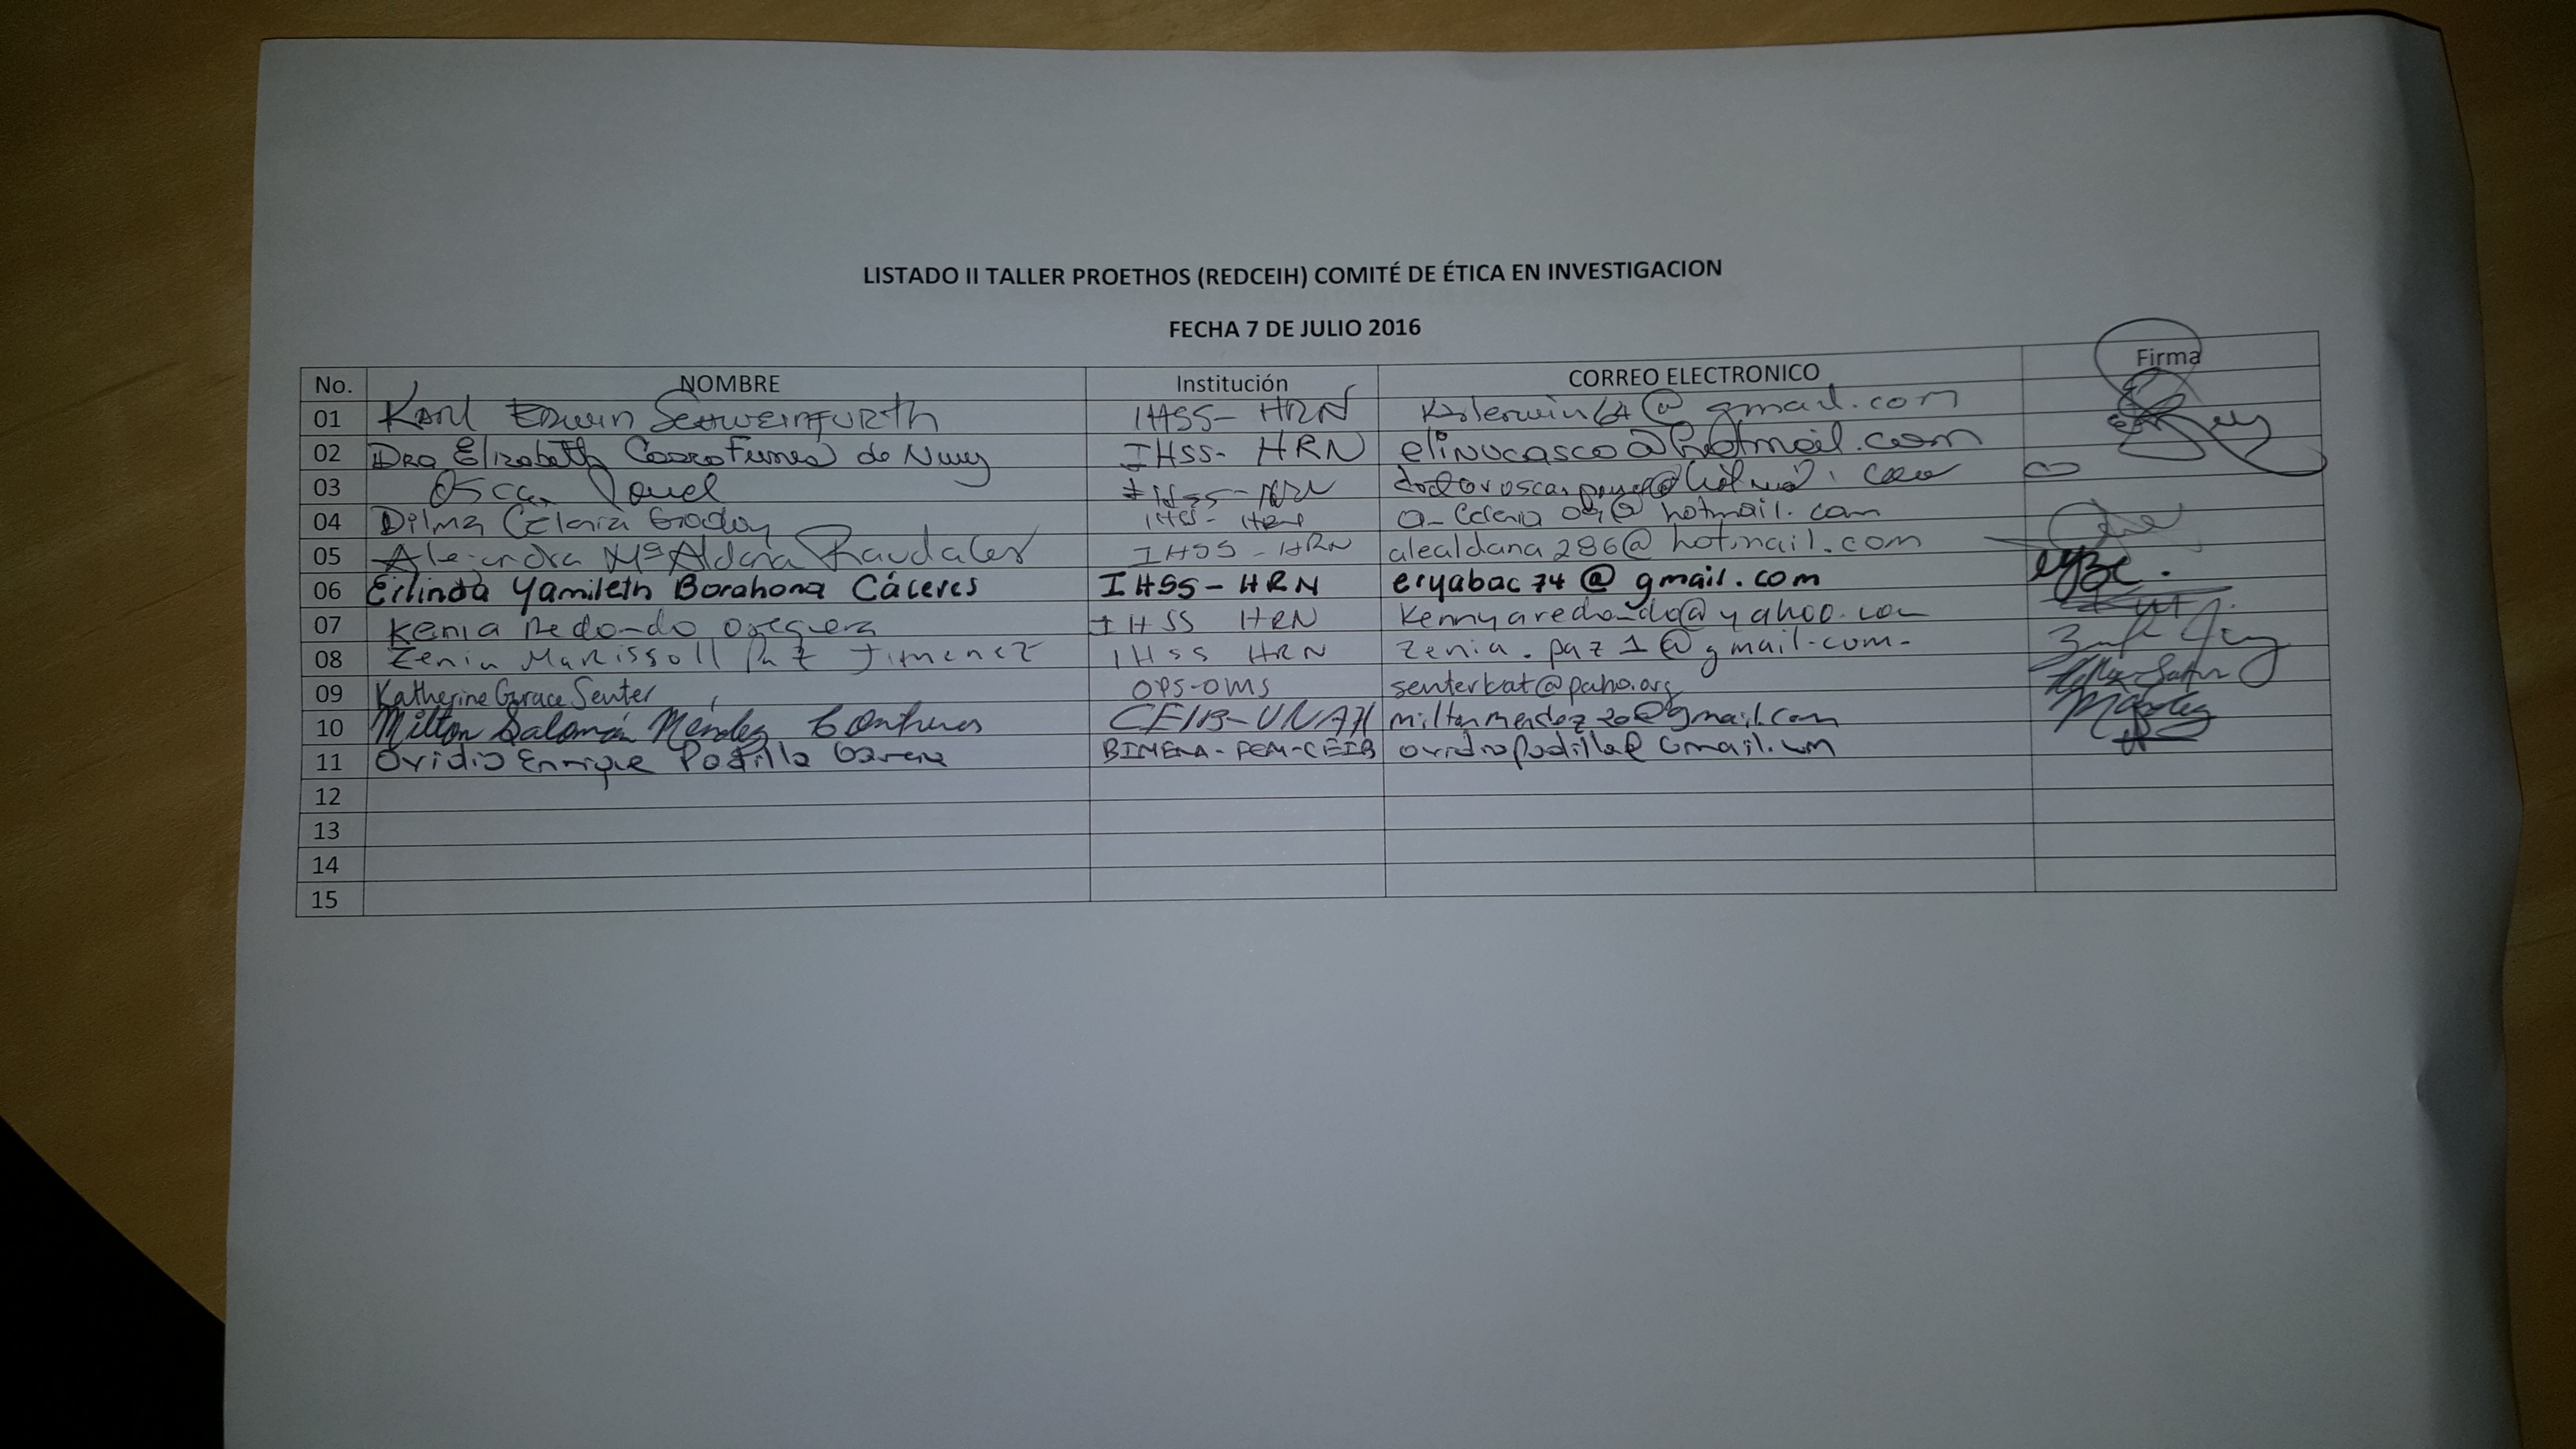 LISTADO II TALLER PROETHOS (REDCEIH) COMITÉ DE ÉTICA EN INVESTIGACION
FECHA 7 DE JULIO 2016
No. NOMBRE Institución CORREO ELECTRONICO Firma
01 Karl Edwin Schweinfurth IHSS- HRN @gmail.com
02 Dra Elizabeth de IHSS- HRN elinucasco@hotmail.com
03 Oscar IHSS-HRN
04 Dilma Celenia Godoy IHSS- HRN hotmail.com
05 Alejandra Mª Aldana Raudales IHSS-HRN alealdana286@hotmail.com
06 Erlinda Yamileth Barahona Cáceres IHSS-HRN eryabac74@gmail.com eybc.
07 Kenia Redondo Oseguera IHSS HRN Kennyaredondo@yahoo.com
08 Zenia Marissoll Paz Jimenez IHSS HRN zenia.paz1@gmail.com-
09 Katherine Grace Senter OPS-OMS senterkat@paho.org
10 Milton Salomón Méndez Contreras CEIB-UNAH miltonmendez20@gmail.com
11 Ovidio Enrique Padilla BIMENA-FCM-CEIB ovidiopadilla@Gmail.com
12
13
14
15